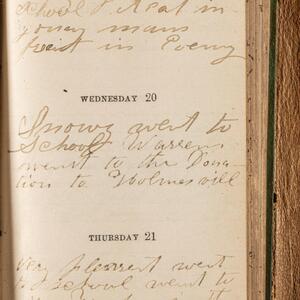 School & Recit in
went in Eveny
WEDNESDAY 20
Snowy went to
School Warren
went to the Dona-
tion to Holmesvill
THURSDAY 21
Very pleasent went
to school went to